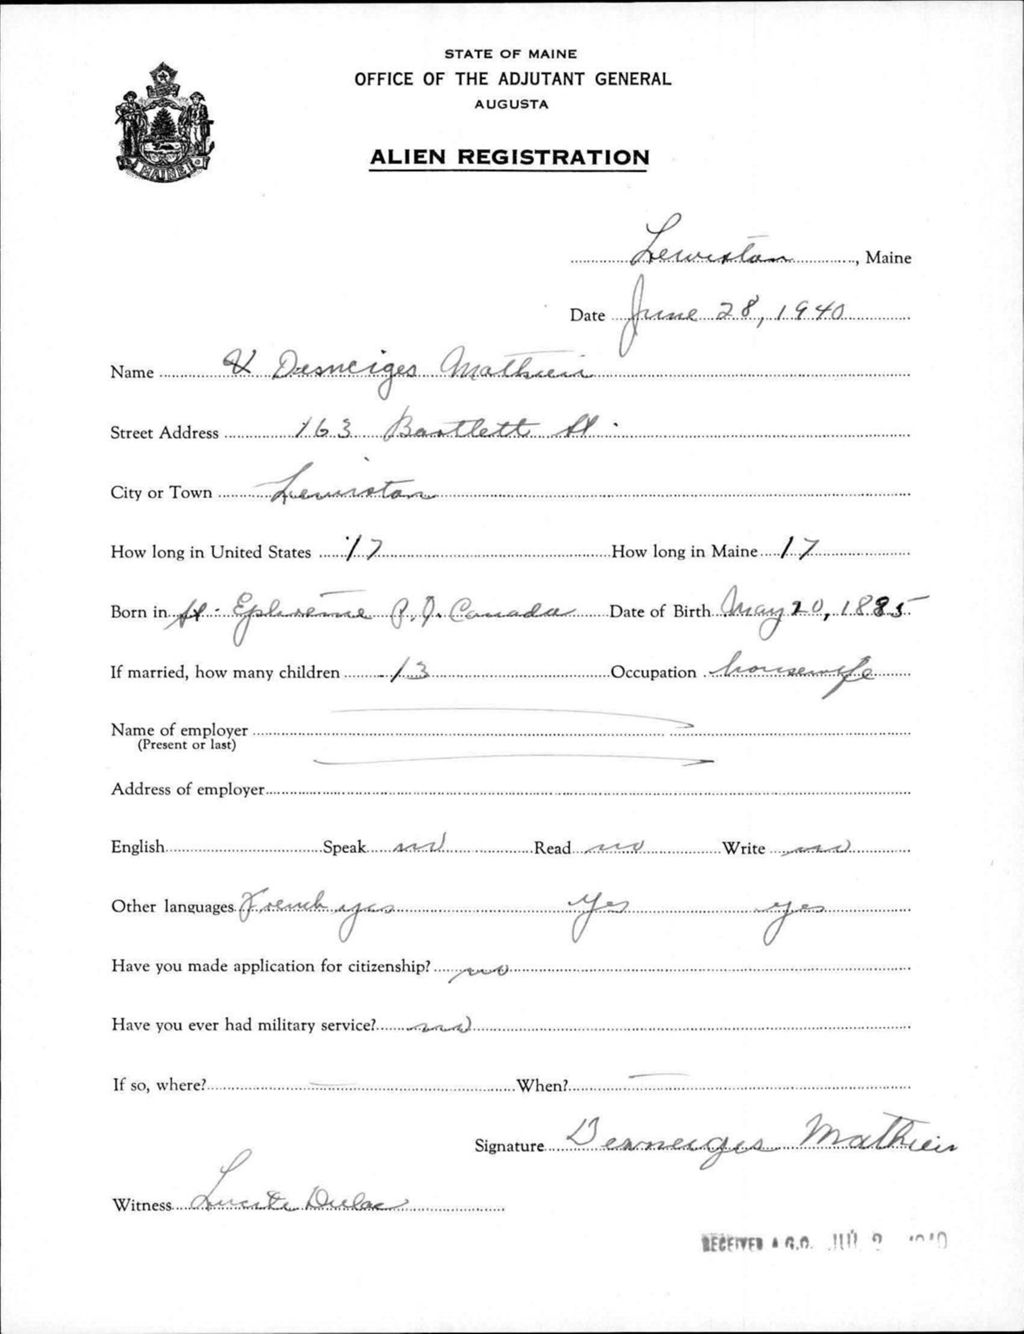 STATE OF MAINE
OFFICE OF THE ADJUTANT GENERAL
AUGUSTA
MAINE
ALIEN REGISTRATION
Lewiston, Maine
Date June 28, 1940
Name Desneiges Mathieu
Street Address 163 Bartlett St.
City or Town Lewiston
How long in United States 17 How long in Maine 17
Born in St. Ephreme P.Q. Canada Date of Birth May 20, 1885
If married, how many children 13 Occupation housewife
Name of employer
(Present or last)
Address of employer
English Speak no Read no Write no
Other languages French yes Yes yes
Have you made application for citizenship? no
Have you ever had military service? no
If so, where? When?
Signature Desneiges Mathieu
Witness Dulac
RECEIVED A.G.O. JUL 2 1940